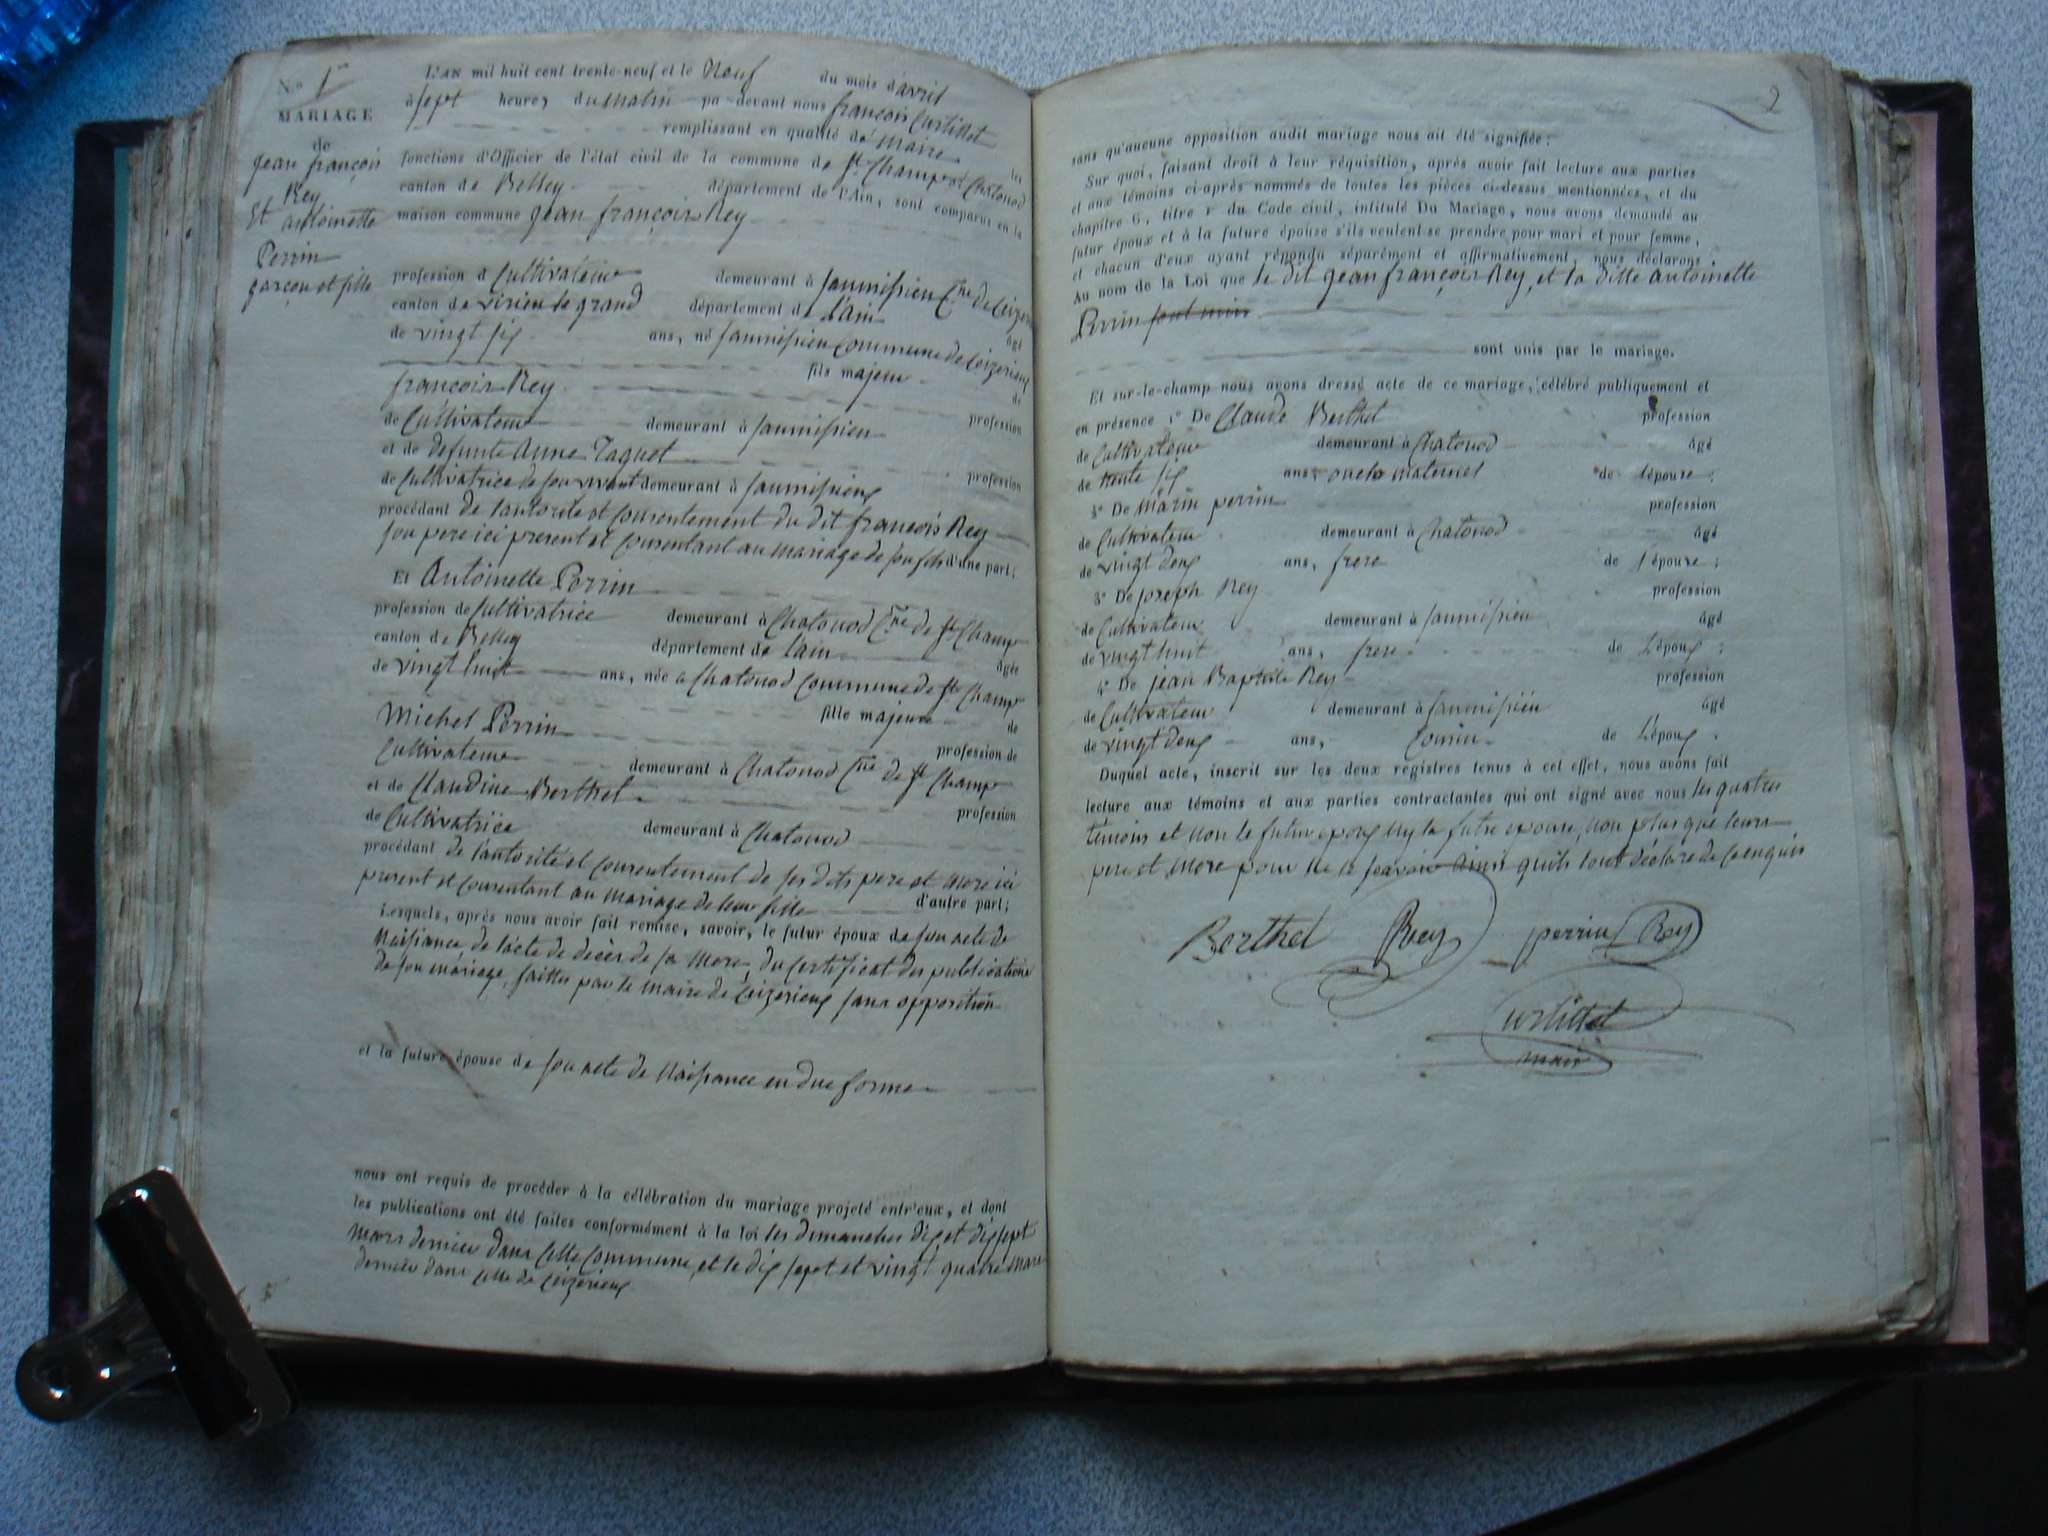 No 1er
MARIAGE
de
jean françois
Rey
Et antoinette
Perrin
garçon et fille
L'AN mil huit cent trente-neuf et le Neuf du mois d'avril
à sept heures du matin pa-devant nous françois Curtillet
remplissant en qualité de Maire les
fonctions d'Officier de l'état civil de la commune de St Champ et Chatonod
canton de Belley département de l'Ain, sont comparus en la
maison commune jean françois Rey
profession d Cultivateur demeurant à Saumissieu Cne de Ceizerieux
canton de virieu le grand département de l'ain âgé
de vingt six ans, né Saumissieu commune de Ceizerieux
fils majeur de
françois Rey profession
de Cultivateur demeurant à Saumissieu
et de defunte Anne Taquet profession
de Cultivatrice de son vivant demeurant à Saumissieux
procédant de l'autorité et consentement du dit françois Rey
son pere ici present et consentant au mariage de son fils d'une part;
Et Antoinette Perrin
profession de Cultivatrice demeurant à Chatonod Cne de St Champ
canton de Belley département de l'ain âgée
de vingt huit ans, née a Chatonod commune de St Champ
fille majeure de
Michel Perrin profession de
Cultivateur demeurant à Chatonod Cne de St Champ
et de Claudine Berthet profession
de Cultivatrice demeurant à Chatonod
procédant de l'autorité et consentement de ses dits pere et mere ici
present et consentant au mariage de leur fille d'autre part;
Lesquels, après nous avoir fait remise, savoir, le futur époux de son acte de
Naissance, de l'acte de decès de sa mere, du certificat des publications
de son mariage, faittes par le maire de Ceizerieux sans opposition
et la future épouse de son acte de Naissance en due forme
nous ont requis de procéder à la célébration du mariage projeté entr'eux, et dont
les publications ont été faites conformément à la loi les dimanches dix et dixsept
mars dernier dans cette commune, et le dix sept et vingt quatre mars
dernier dans celle de Ceizerieux
2
sans qu'aucune opposition audit mariage nous ait été signifiée:
Sur quoi, faisant droit à leur réquisition, après avoir fait lecture aux parties
et aux témoins ci-après nommés de toutes les pièces ci-dessus mentionnées, et du
chapitre 6, titre v du Code civil, intitulé Du Mariage, nous avons demandé au
futur époux et à la future épouse s'ils veulent se prendre pour mari et pour femme,
et chacun d'eux ayant répondu séparément et affirmativement, nous déclarons
Au nom de la Loi que le dit jean françois Rey, et la ditte antoinette
Perrin sont unis
sont unis par le mariage.
Et sur-le-champ nous avons dressé acte de ce mariage, célébré publiquement et
en présence 1° De Claude Berthet profession
de Cultivateur demeurant à Chatonod âgé
de trente six ans oncle maternel de l'épouse;
2° De Marin perrin profession
de Cultivateur demeurant à Chatonod âgé
de vingt deux ans, frere de l'épouse;
3° De joseph Rey profession
de Cultivateur demeurant à Saumissieu âgé
de vingt huit ans, frere de L'époux;
4° De jean Baptiste Rey profession
de Cultivateur demeurant à Saumissieu âgé
de vingt deux ans, cousin de L'époux.
Duquel acte, inscrit sur les deux registres tenus à cet effet, nous avons fait
lecture aux témoins et aux parties contractantes qui ont signé avec nous les quatres
témoins et non le futur epoux ny la futre epouse, non plus que leurs
pere et mere pour ne le scavoir ainsi quils l'ont déclaré de ce enquis
Berthet Rey perrin Rey
Curtillet
maire